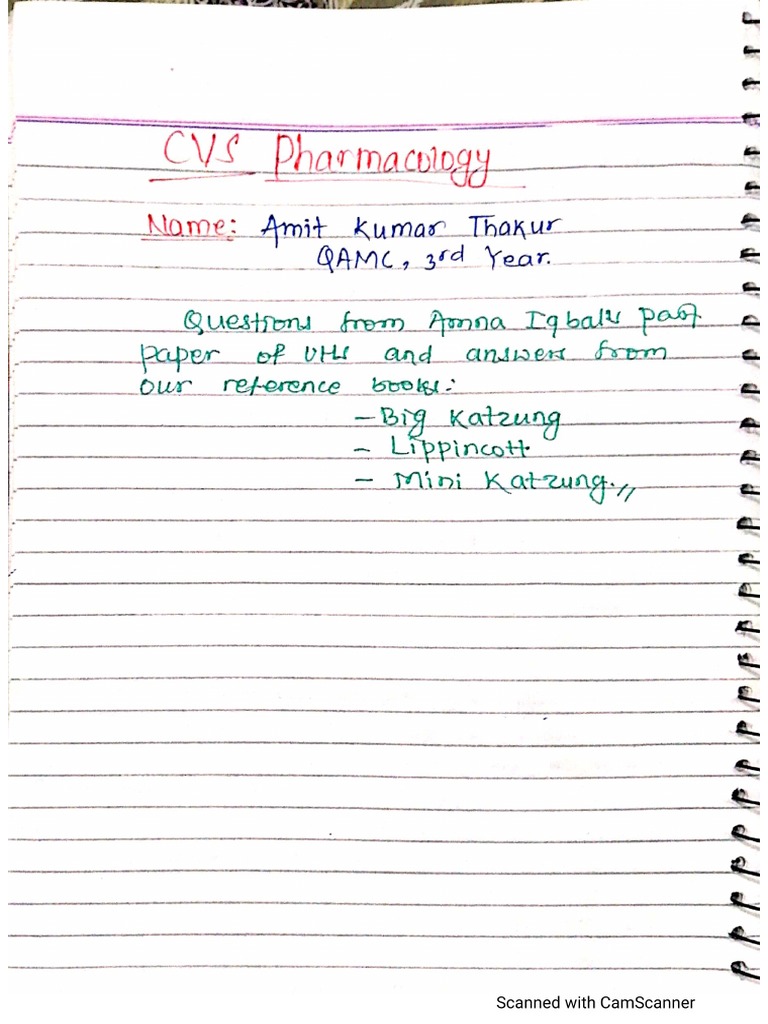 CVS Pharmacology
Name: Amit Kumar Thakur
QAMC, 3rd Year.
Questions from Amna Iqbal's past
paper of UHS and answers from
our reference books:
- Big Katzung
- Lippincott.
- Mini Katzung.//
Scanned with CamScanner